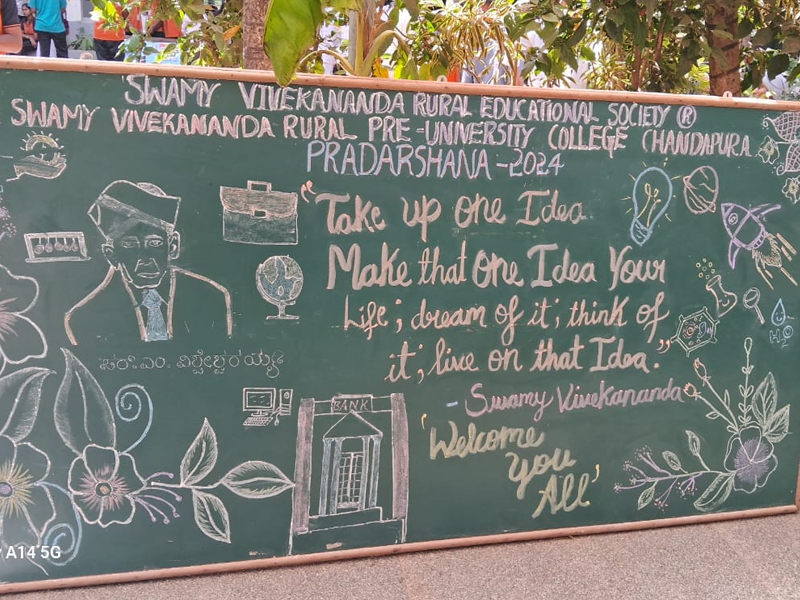 SWAMY VIVEKANANDA RURAL EDUCATIONAL SOCIETY ®
SWAMY VIVEKANANDA RURAL PRE-UNIVERSITY COLLEGE CHANDAPURA
PRADARSHANA-2024
"Take up one Idea
Make that One Idea Your
Life; dream of it; think of
it; live on that Idea."
- Swamy Vivekananda
ಸರ್.ಎಂ. ವಿಶ್ವೇಶ್ವರಯ್ಯ
BANK
'Welcome
You
All'
H2O
A14 5G